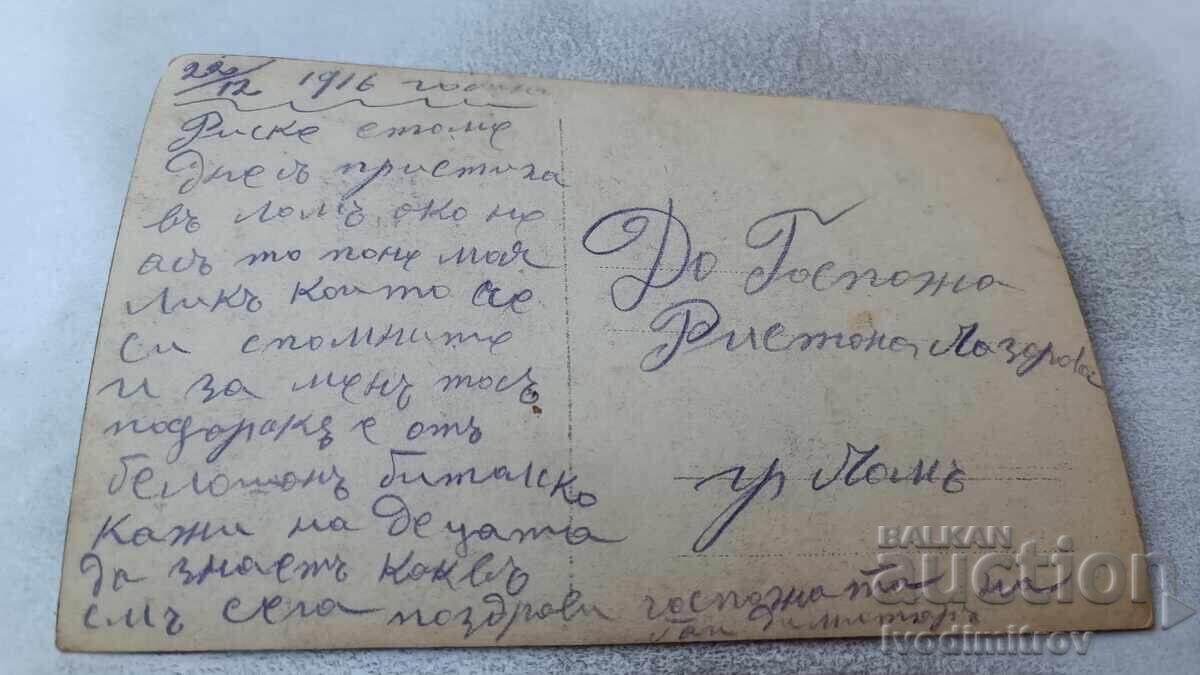 22/12 1916 година
Риске стоме
Днесъ пристига
въ Ломъ око не
азъ то поне моя
ликъ който ще
си спомните
и за менъ тозъ
подаракъ е от
Битолско
кажи на Децата
да знаетъ каквъ
смъ сега поздрави госпожата на
Димитъръ
До Госпожа
Ристона Лаздрова
гр Ломъ
BALKAN
auction
ivodimitrov